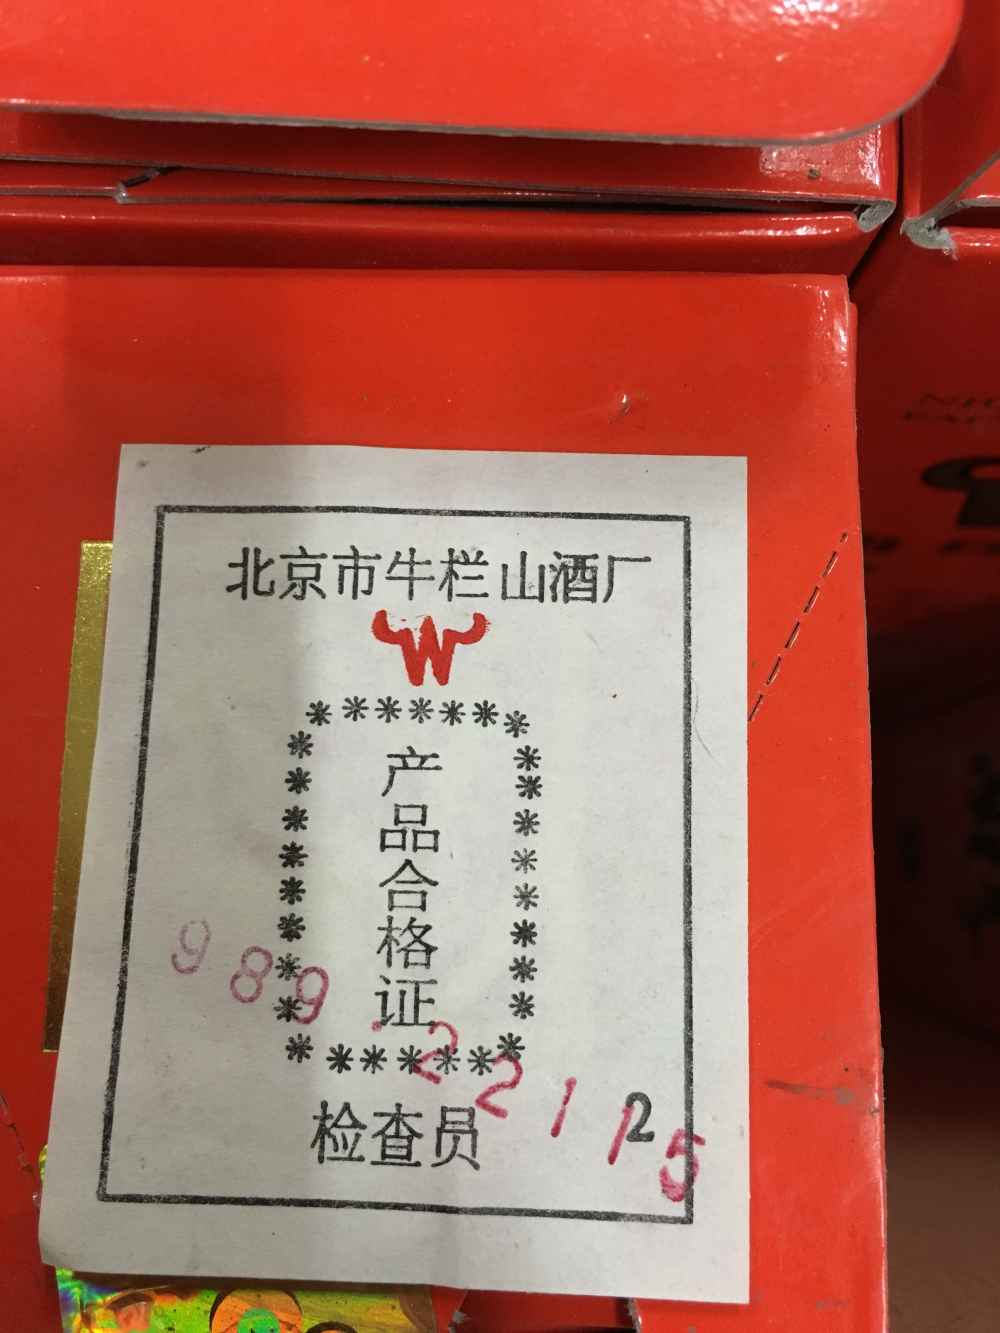 北京市牛栏山酒厂
产品合格证
989.22115
检查员 2